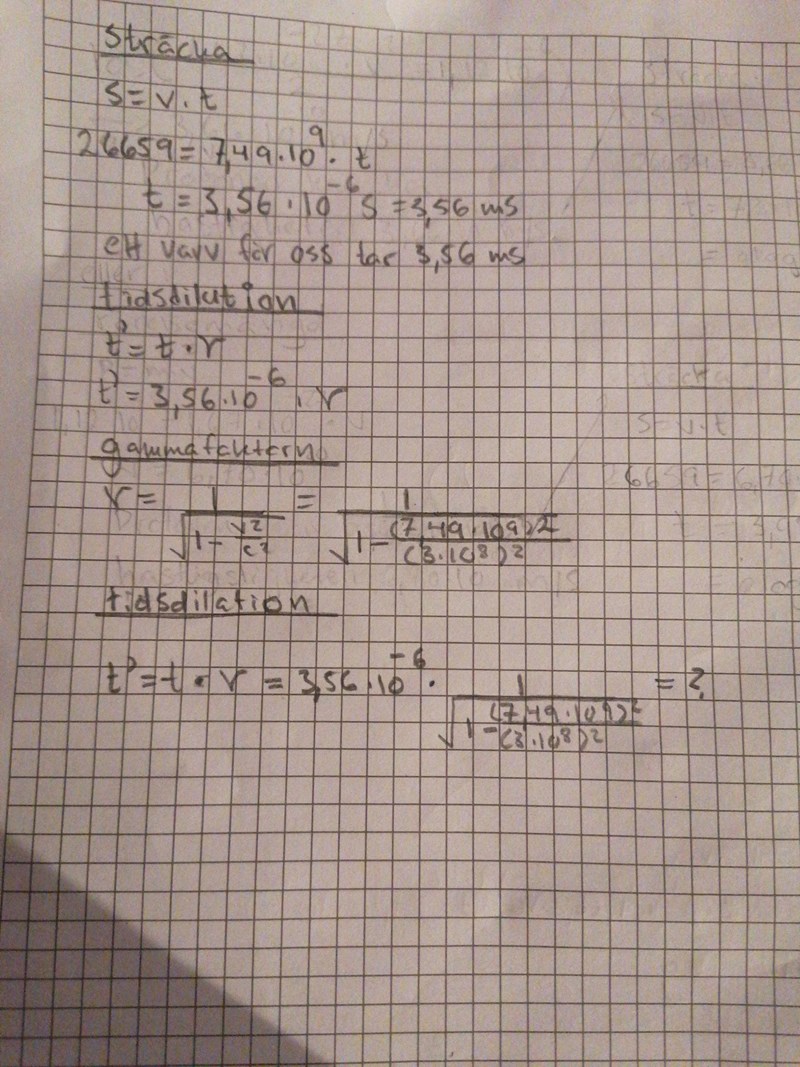 Sträcka
s = v · t
26659 = 7,49 · 10⁹ · t
t = 3,56 · 10⁻⁶ s = 3,56 ms
ett varv för oss tar 3,56 ms
tidsdilation
t' = t · γ
t' = 3,56 · 10⁻⁶ · γ
gammafaktorn
γ = 1/√(1 - v²/c²) = 1/√(1 - (7,49 · 10⁹)²/(3 · 10⁸)²)
tidsdilation
t' = t · γ = 3,56 · 10⁻⁶ · 1/√(1 - (7,49 · 10⁹)²/(3 · 10⁸)²) = ?